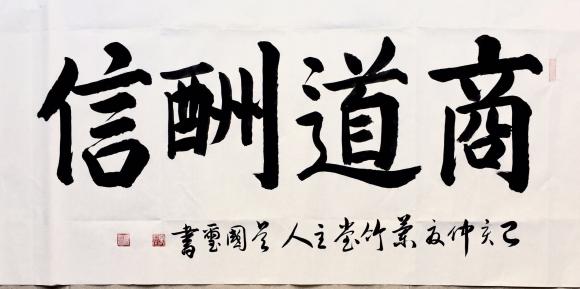 商道酬信
己亥仲夏竹堂主人國璽書